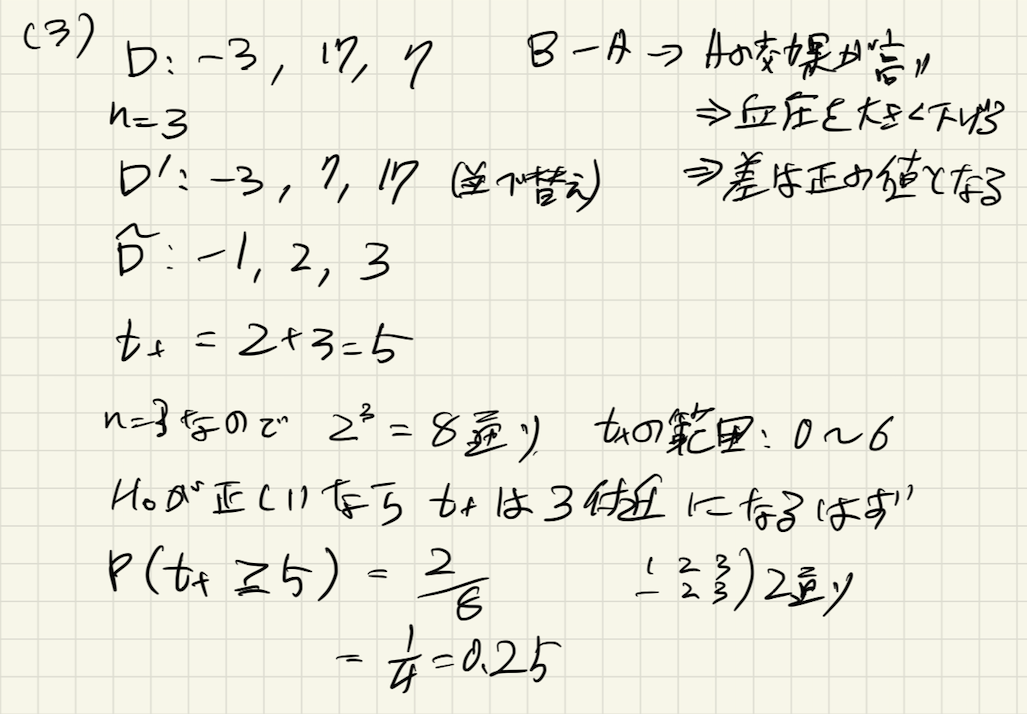 (3) D: -3, 17, 7 B-A → Aの効果が高い
n=3 ⇒ 血圧を大きく下げる
D': -3, 7, 17 (並べ替え) ⇒ 差は正の値となる
D̃: -1, 2, 3
t₊ = 2+3=5
n=3なので 2³ = 8通り t₊の範囲: 0～6
H₀が正しいなら t₊は3付近になるはず
P(t₊ ≧ 5) = 2/8 1 2 3 – 2 3 ) 2通り
= 1/4 = 0.25